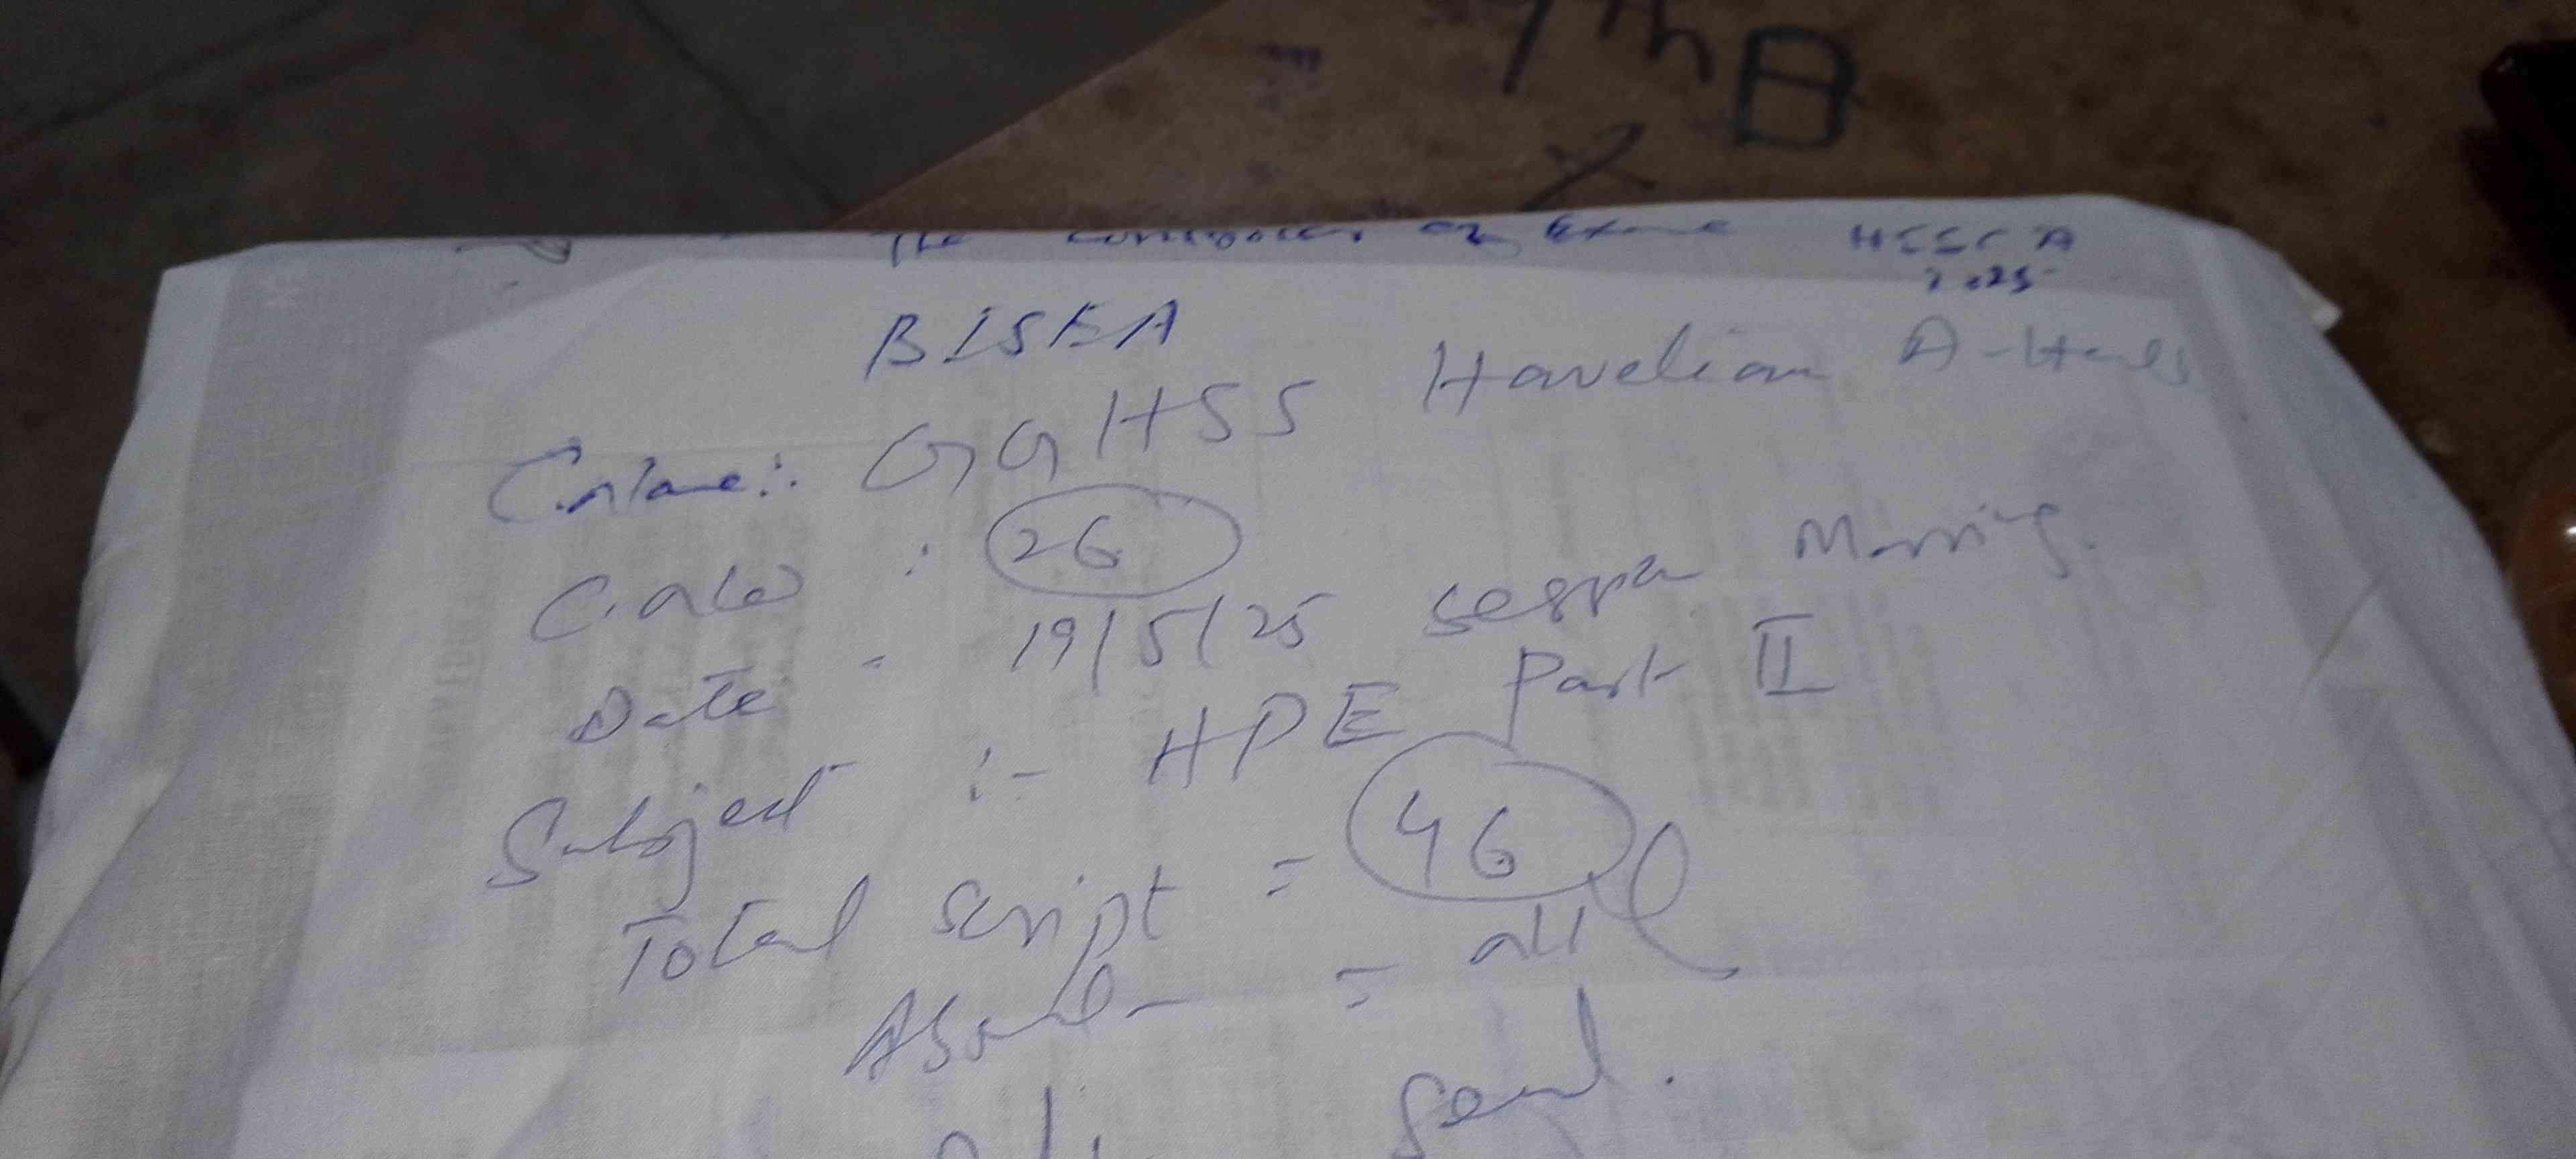 9th B
The Controller of Exam HSSC A
2025
BISEA
GGHSS Havelian A-
: 26
Date = 19/5/25 Session Morning.
Subject :- HPE Part II
Total script = 46
= all